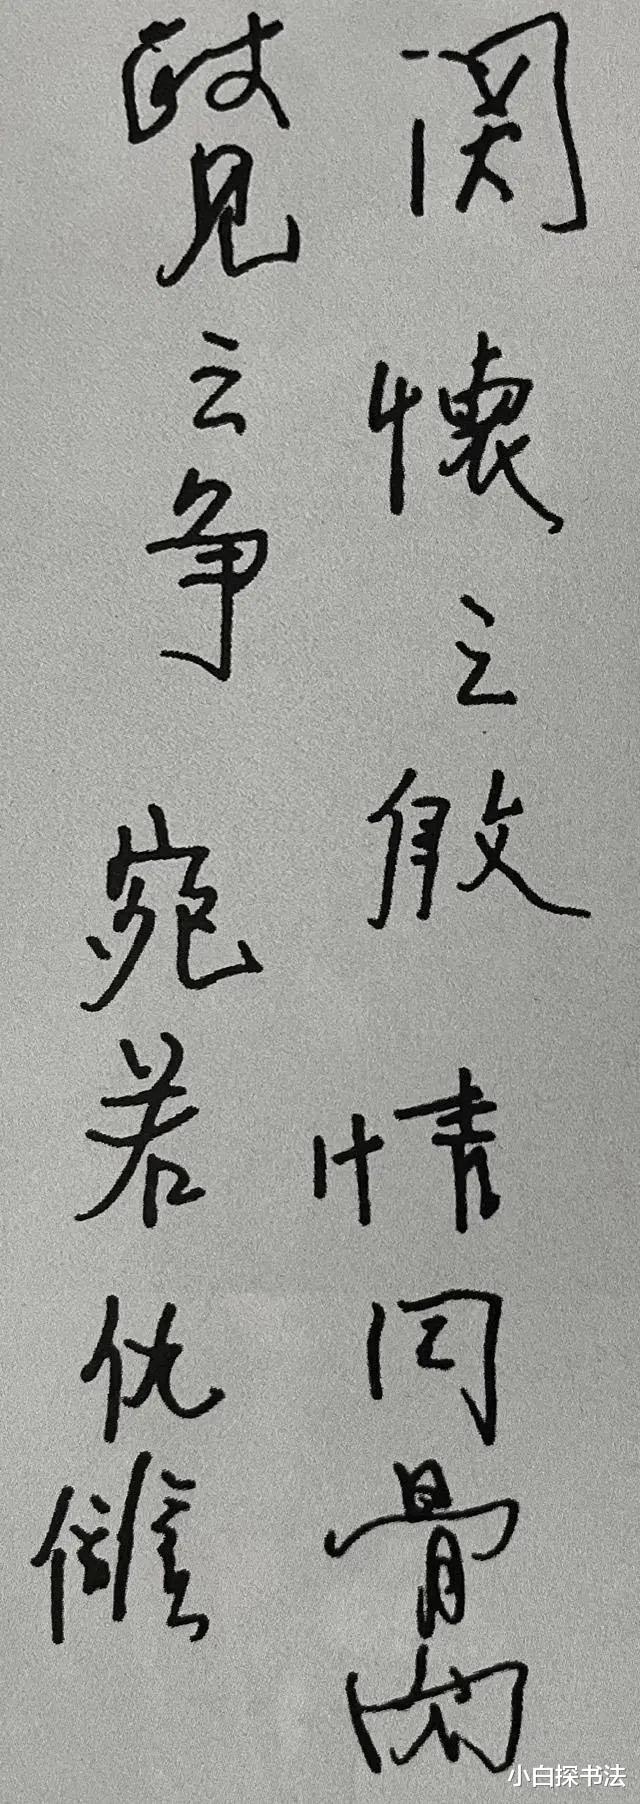 関懷之殷情同骨肉
政見之争宛若仇雠
小白探书法